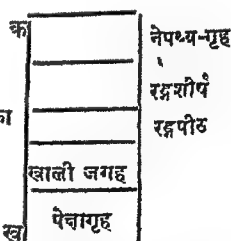 क
नेपथ्य-गृह
रङ्गशीर्ष
का
रङ्गपीठ
खाली जगह
प्रेक्षागृह
ख